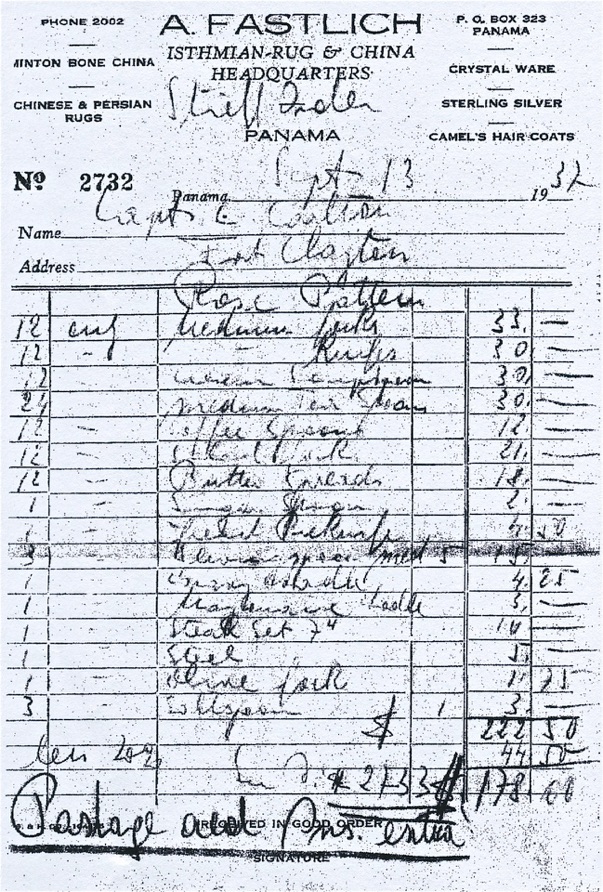 PHONE 2002
A. FASTLICH
P. O. BOX 323
PANAMA
MINTON BONE CHINA
ISTHMIAN-RUG & CHINA
HEADQUARTERS
CRYSTAL WARE
CHINESE & PERSIAN
RUGS
Stieff Order
STERLING SILVER
PANAMA
CAMEL'S HAIR COATS
Nº 2732
Panama Sept 13 1932
Name Capt
Address Fort Clayton
Rose Pattern
12 only Medium forks 33. —
12 — Knifes 30 —
12 — 30. —
24 — medium Tea Spoons 30. —
12 — Coffee Spoons 12 —
12 — Salad fork 21. —
12 — Butter Spreads 18. —
1 — Sugar Spoon 2. —
1 — 50
3 — spoon med 5 15. —
1 — Gravy Ladle 4. 25
1 — Mayonnaise Ladle 3. —
1 — Steak Set 7" 10 —
1 — Steel 5. —
1 — Olive fork 1. 75
3 — Saltspoon 1 3. —
$ 222 50
less 20% 44 50
178 00
RECEIVED IN GOOD ORDER
Postage and Ins. extra
SIGNATURE